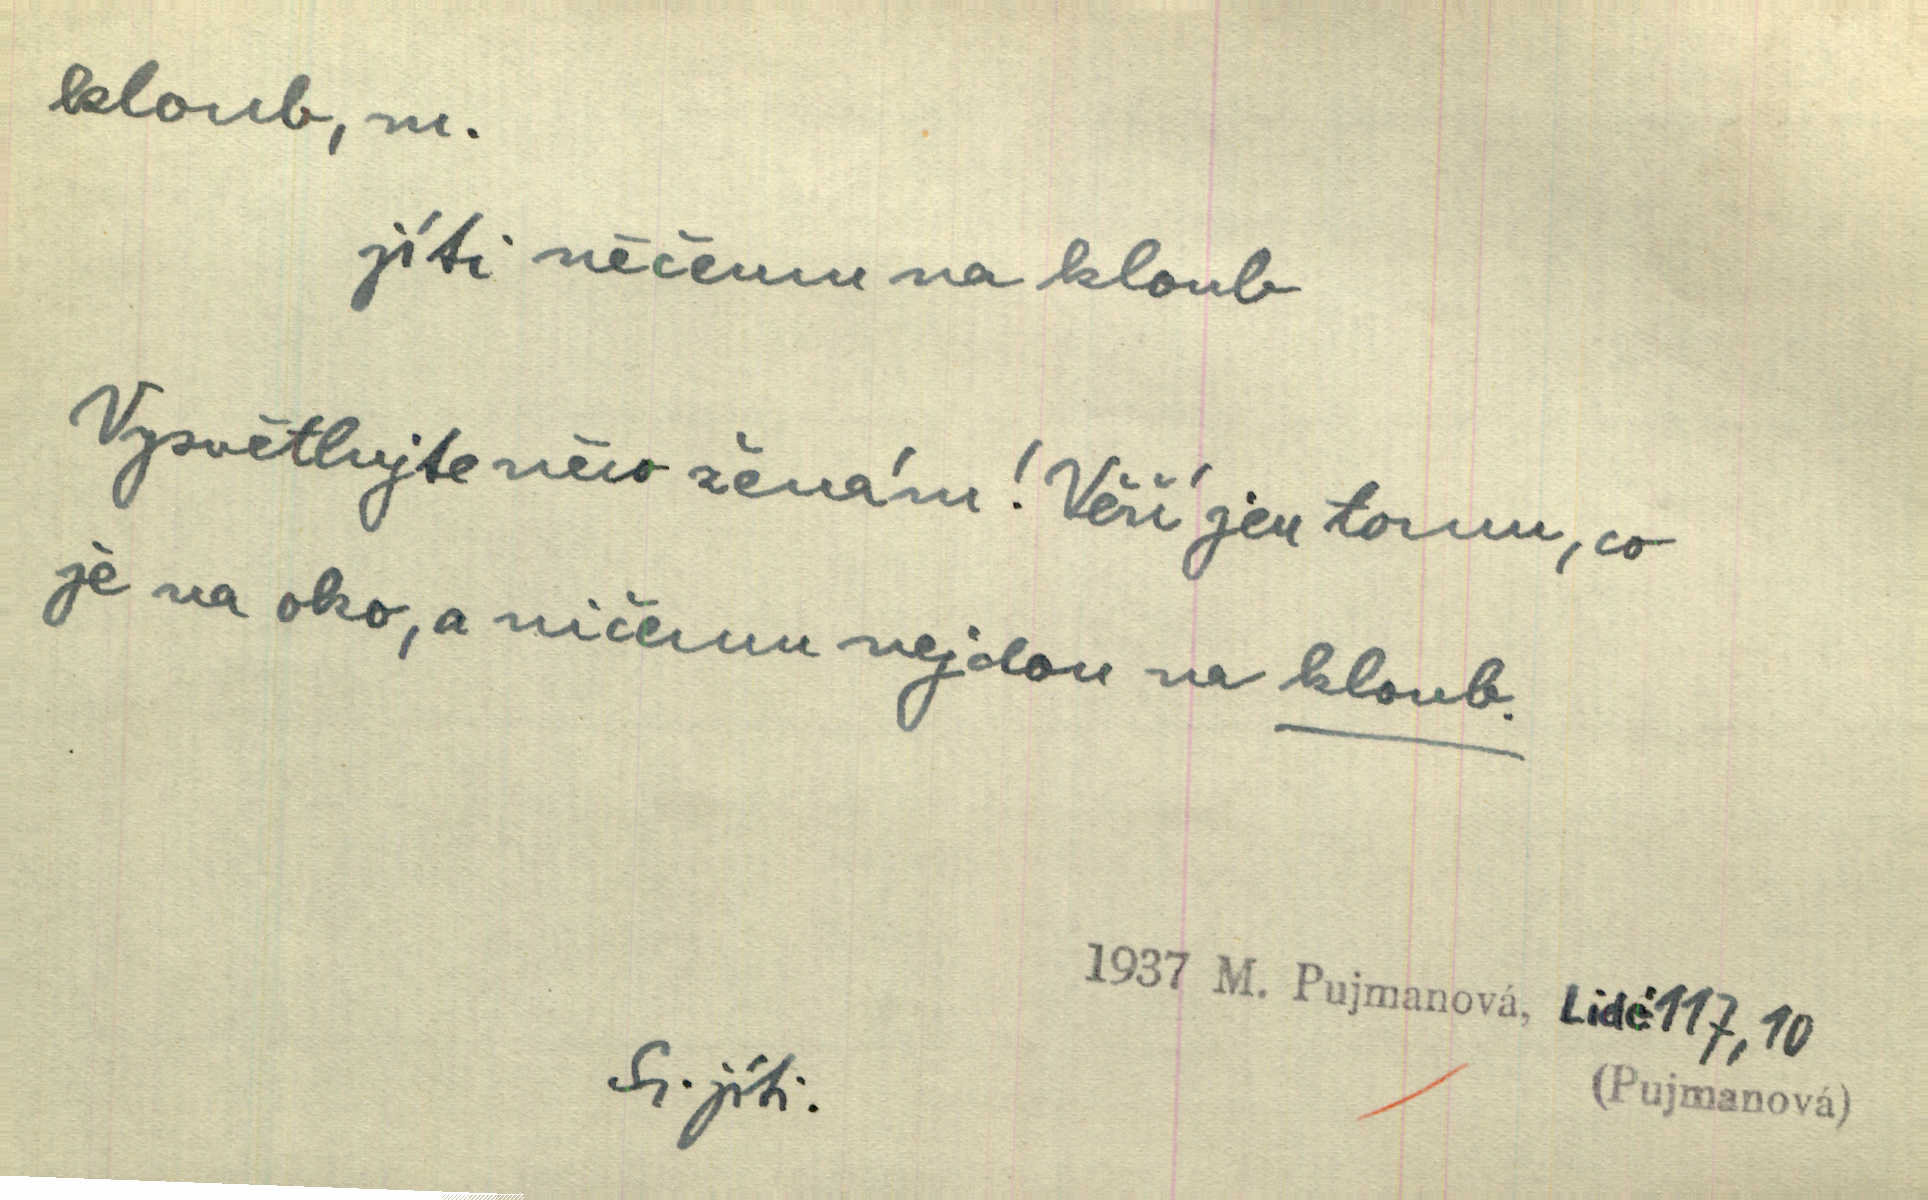 kloub, m.
jíti něčemu na kloub
Vysvětlujte něco ženám! Věří jen tomu, co
je na oko, a ničemu nejdou na kloub.
1937 M. Pujmanová, Lidé 117, 10
(Pujmanová)
Sr. jíti.